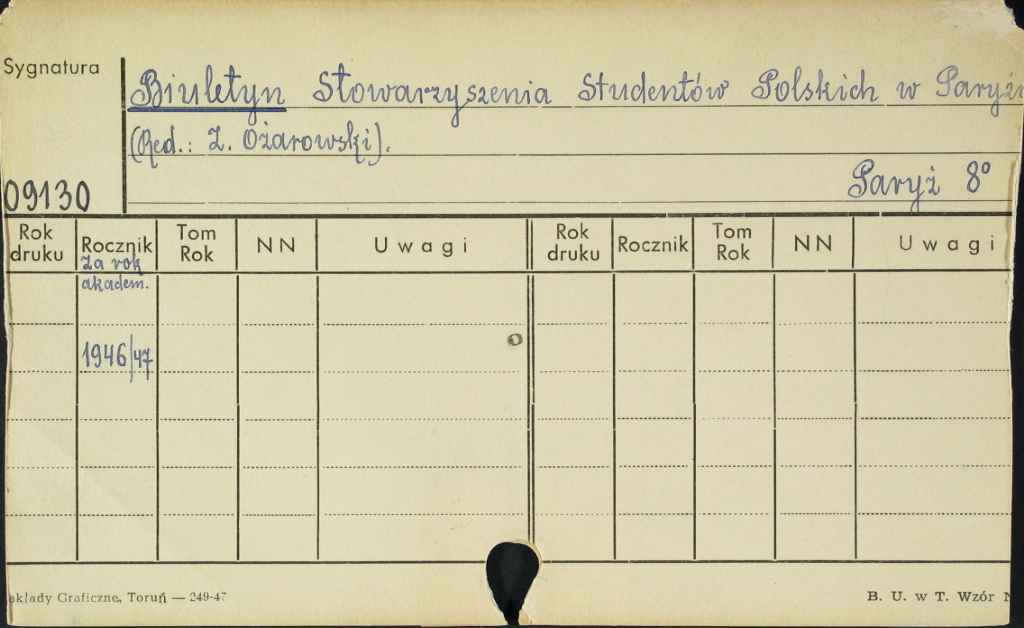 Sygnatura
Biuletyn Stowarzyszenia Studentów Polskich w Paryżu
(Red.: Z. Ożarowski).
Paryż 8°
09130
Rok druku Rocznik Tom Rok NN Uwagi Rok druku Rocznik Tom Rok NN Uwagi
Za rok
akadem.
1946/47
akłady Graficzne, Toruń — 249-47
B. U. w T. Wzór